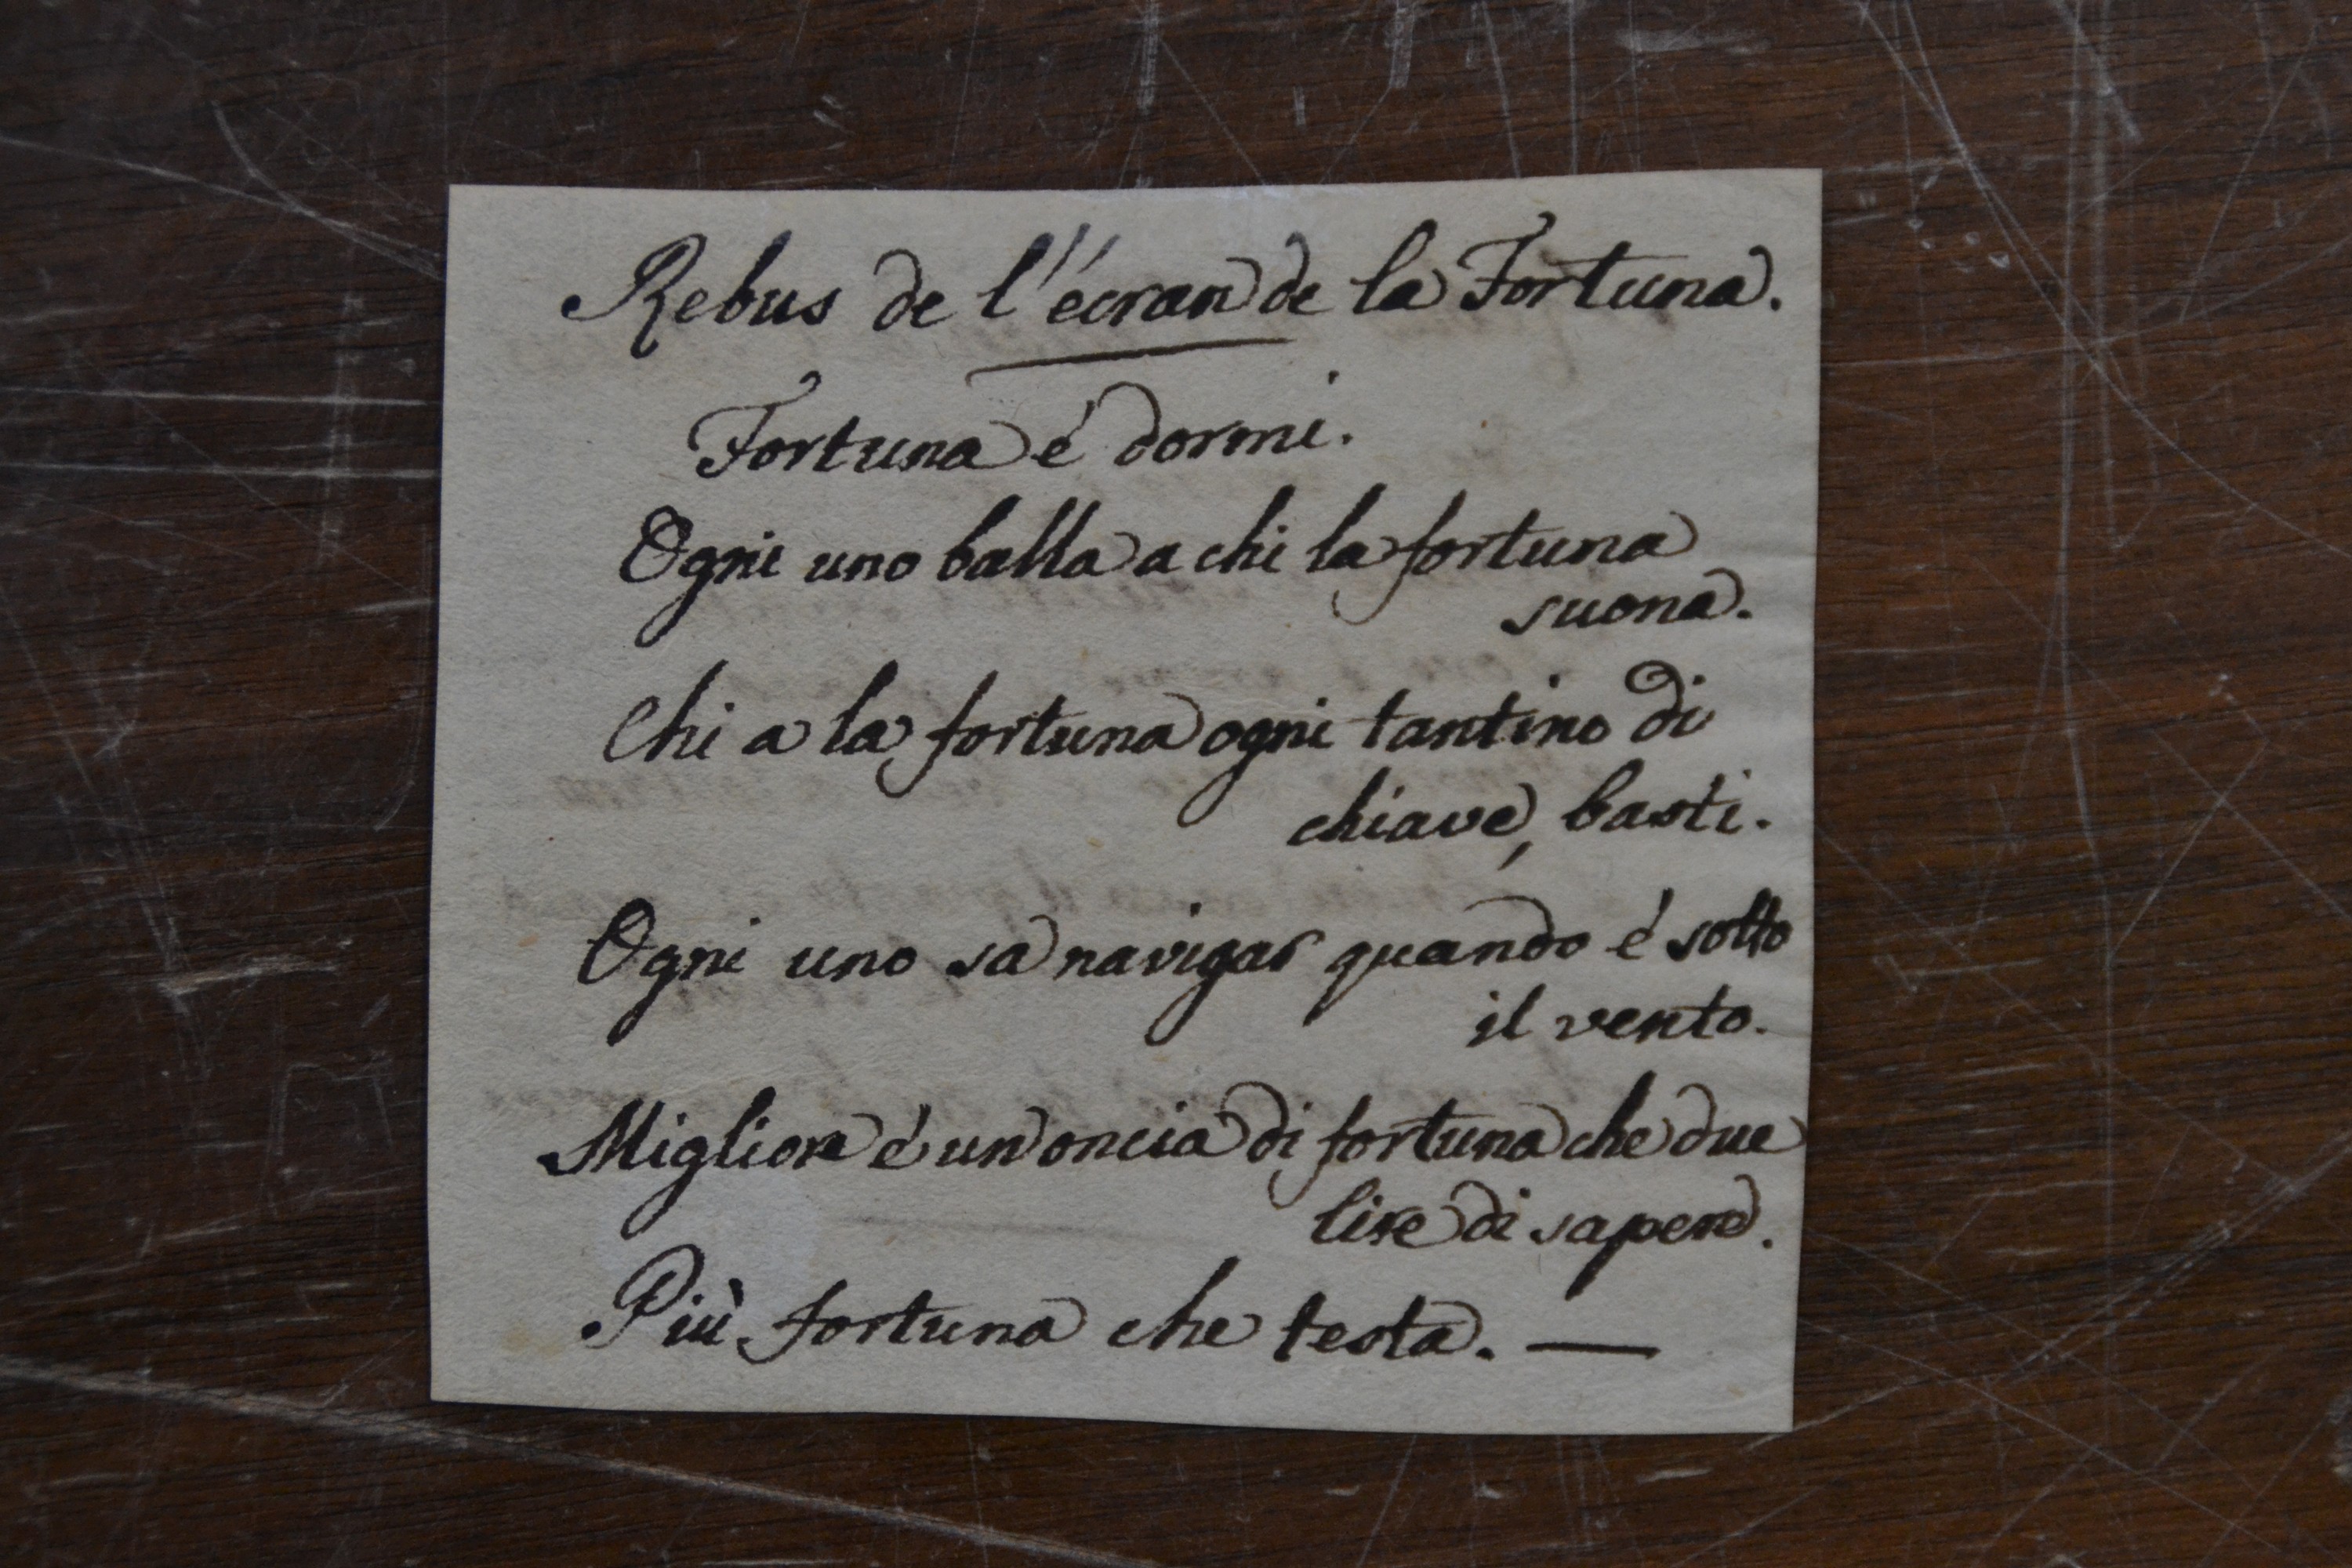 Rebus de l'écran de la Fortuna.
Fortuna é dormi.
Ogni uno balla a chi la fortuna
suona.
Chi a la fortuna ogni tantino di
chiave, basti.
Ogni uno sa navigar quando é sotto
il vento.
Migliore é un oncia di fortuna che due
lire di sapere.
Più fortuna che testa. —